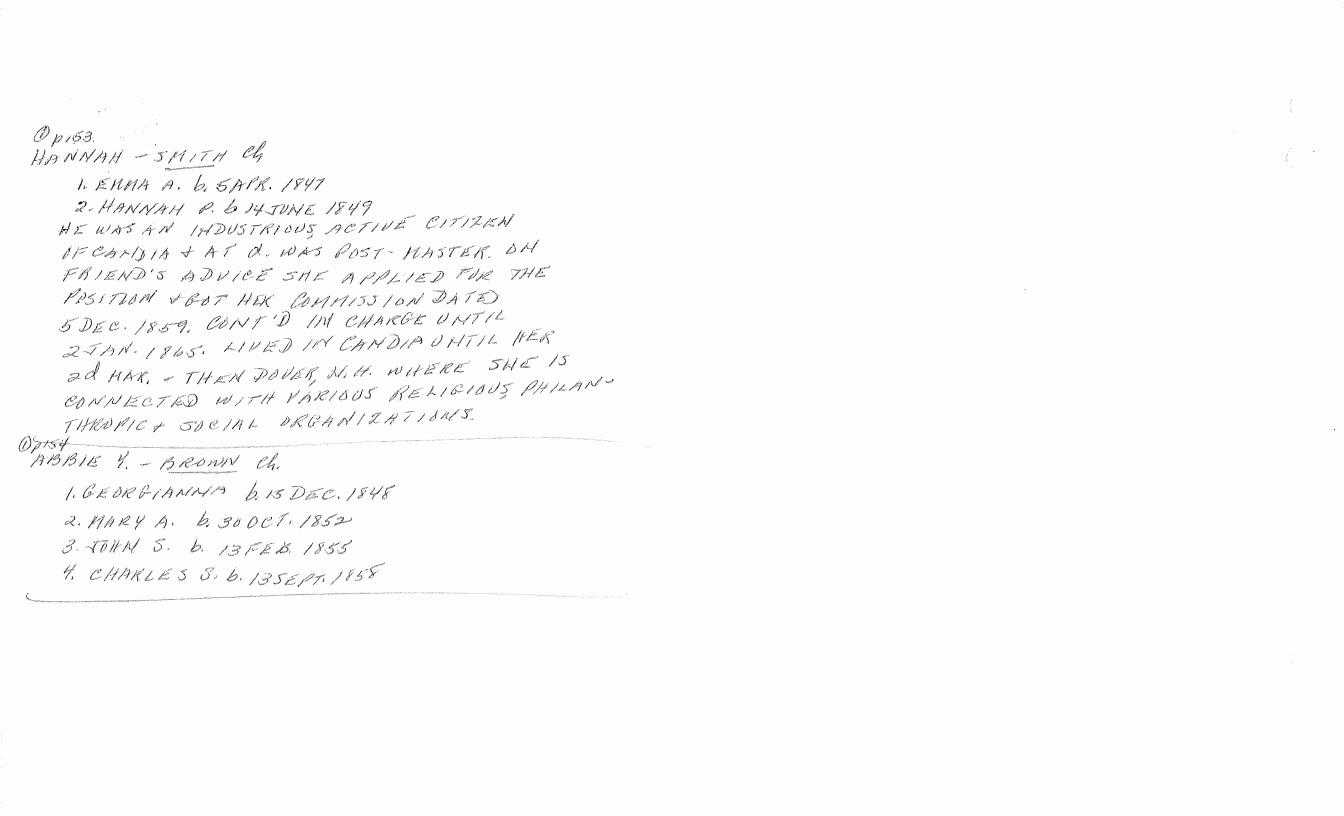 ① p153.
HANNAH - SMITH Ch
1. EMMA A. b. 5 APR. 1847
2. HANNAH P. b 14 JUNE 1849
HE WAS AN INDUSTRIOUS, ACTIVE CITIZEN
OF CANDIA & AT d. WAS POST-MASTER. ON
FRIEND'S ADVICE SHE APPLIED FOR THE
POSITION & GOT HER COMMISSION DATED
5 DEC. 1859. CONT'D IN CHARGE UNTIL
2 JAN. 1865. LIVED IN CANDIA UNTIL HER
2d MAR. - THEN DOVER, N.H. WHERE SHE IS
CONNECTED WITH VARIOUS RELIGIOUS, PHILAN-
THROPIC & SOCIAL ORGANIZATIONS.
① p154
ABBIE Y. - BROWN Ch.
1. GEORGIANNA b. 15 DEC. 1848
2. MARY A. b. 30 OCT. 1852
3. JOHN S. b. 13 FEB. 1855
4. CHARLES S. b. 13 SEPT. 1858